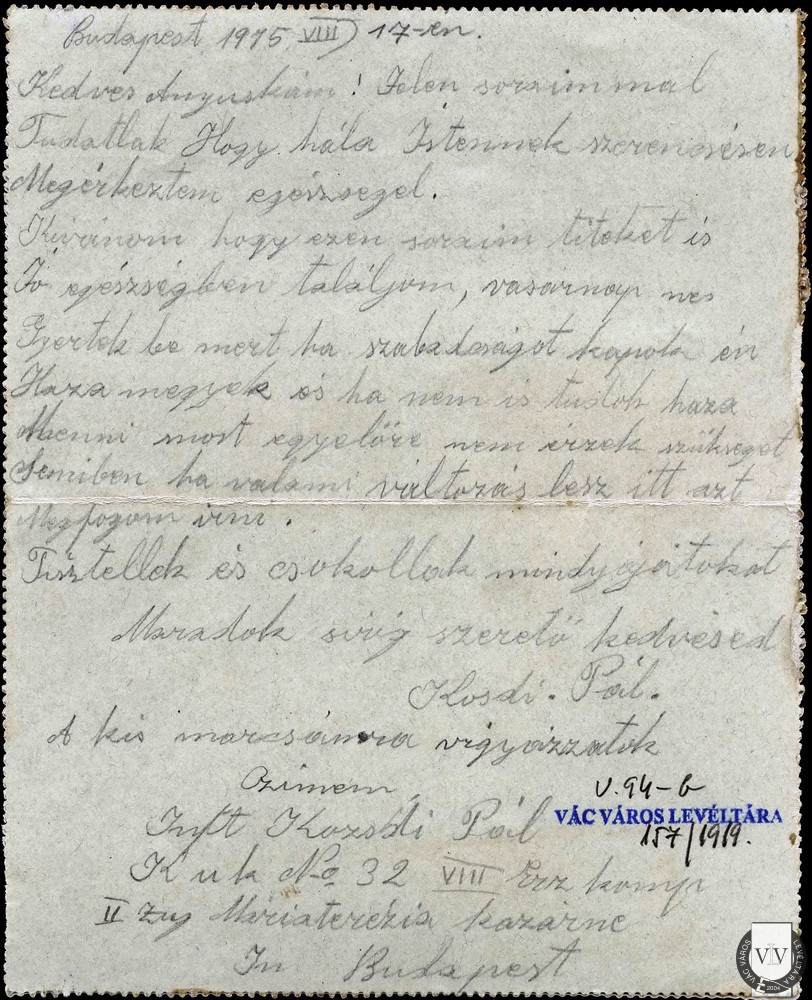 Budapest, 1915 VIII) 17-en.
Kedves Anyuskám! Jelen sorzimmal
Tudatlak Hogy hála Istennek szerencsésen
Megérkeztem egészsegel.
Kivánom hogy ezen sorzim titeket is
Jó egészségben találjom, vasarnap ne
Gyertek be mert ha szabadságot kapok én
Haza megyek és ha nem is tudok haza
Menni most egyelőre nem érzek szükseget
Semiben ha valami változás lesz itt azt
Megfogom irni.
Tisztellek és csokollak mindyájatokat
Maradok sirig szerető kedvésed
Kosdi. Pál.
A kis marcsámra vigyázzatok
Czimem
Inft Kozsdi Pál
V.94-b
VÁC VÁROS LEVÉLTÁRA
157/1919.
K u k No 32 VIII Erz komp
II Zug Máriaterézia kazárne
In Budapest
VÁC VÁROS LEVÉLTÁRA
2004